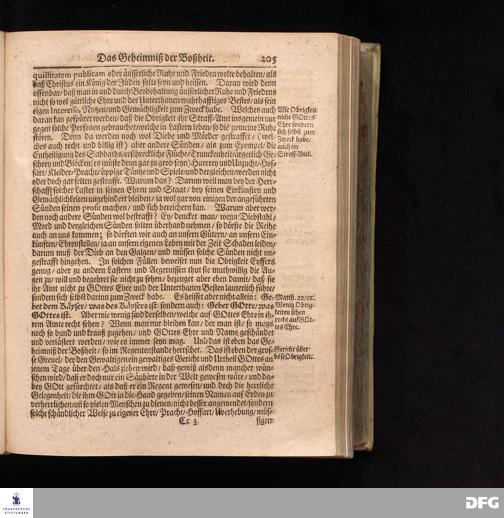 Das Geheimniß der Boßheit. 205
quillitatem publicam oder äusserliche Ruhe und Frieden wolte behalten/ als
daß Christus ein König der Jüden solte seyn und heissen. Daran wird denn
offenbar/ daß man in und durch Beobehaltung äusserlicher Ruhe und Friedens
nicht so wol göttliche Ehre und der Unterthanen wahrhafftiges Bestes/ als sein
eigen Interesse, Nutzen und Gemächligkeit zum Zweck habe. Welches auch
daran kan gespüret werden/ daß die Obrigkeit ihr Straff-Amt insgemein nur
gegen solche Personen gebrauchet/ welche in Lastern leben/ so die gemeine Ruhe
stören. Denn da werden noch wol Diebe und Mörder gestraffet/ (wel-
ches auch recht und billig ist) aber andere Sünden/ als zum Exempel/ die
Entheiligung des Sabbaths/ erschreckliche Flüche/ Trunckenheit/ ärgerlich Ge-
schrey und Blöcken (es müste denn gar zu grob seyn) Hurerey und Unzucht/ Hof-
fart/ Kleider-Pracht/ üppige Täntze und Spiele/ und dergleichen/ werden nicht
oder doch gar selten gestrafft. Warum das? Darum weil man bey der Herr-
schafft solcher Laster in seinen Ehren und Staat/ bey seinen Einkünften und
Gemächligkeiten ungehindert bleiben/ ja wol gar von einigen der angeführten
Sünden seinen profit machen/ und sich bereichern kan. Warum aber wer-
den noch andere Sünden wol bestrafft? Ey/ dencket man/ wenn Diebstahl/
Mord und dergleichen Sünden solten überhand nehmen/ so dörfte die Reihe
auch an uns kommen; so dörften wir auch an unsern Gütern/ an unsern Ein-
künften/ Ehrenstellen/ ja an unserm eigenen Leben mit der Zeit Schaden leiden/
darum muß der Dieb an den Galgen/ und müssen solche Sünden nicht un-
gestrafft hingehen. In solchen Fällen beweiset nun die Obrigkeit Eyffers
genug/ aber zu andern Lastern und Aergernissen thut sie muthwillig die Au-
gen zu/ will und begehret sie nicht zu sehen/ bezeuget aber eben damit/ daß sie
ihr Amt nicht zu GOttes Ehre und der Unterthanen Besten lauterlich führe/
sondern sich selbst darinn zum Zweck habe. Es heisset aber nicht allein: Ge-
bet dem Käyser/ was des Käysers ist/ sondern auch: Gebet GOtte/ was
GOttes ist. Aber wie wenig sind derselben/ welche auf GOttes Ehre in ih-
rem Amte recht sehen? Wenn man nur bleiben kan/ der man ist/ so mags
noch so bund und krauß zugehen/ und GOttes Ehre und Name geschändet
und verlästert werden/ wie es immer seyn mag. Und das ist eben das Ge-
heimniß der Boßheit/ so im Regentenstande herrschet. Das ist eben der gros-
se Greuel/ der den Gewaltigen ein gewaltiges Gericht und Urtheil GOttes an
jenem Tage über den Hals ziehen wird/ daß gewiß alsdenn mancher wün-
schen wird/ daß er doch nur ein Säuhirte in der Welt gewesen wäre/ und da-
bey GOtt gefürchtet/ als daß er ein Regent gewesen/ und doch die herrliche
Gelegenheit/ die ihm GOtt in die Hand gegeben/ seinen Namen auf Erden zu
verherrlichen/ und so vielen Menschen zu dienen/ nicht besser angewendet/ sondern
solche schändlicher Weise zu eigener Ehre/ Pracht/ Hoffart/ Uberhebung/ müs-
Cc 3 sigem
Wie Obrigkeit
nicht GOttes
Ehre sondern
sich selbst zum
Zweck habe/
auch im
Straff-Amt.
Matth. 22/21.
Wenig Obrig-
keiten sehen
recht auf GOt-
tes Ehre.
Gericht über
böse Obrigkeit.
FRANCKESCHE
STIFTUNGEN
DFG